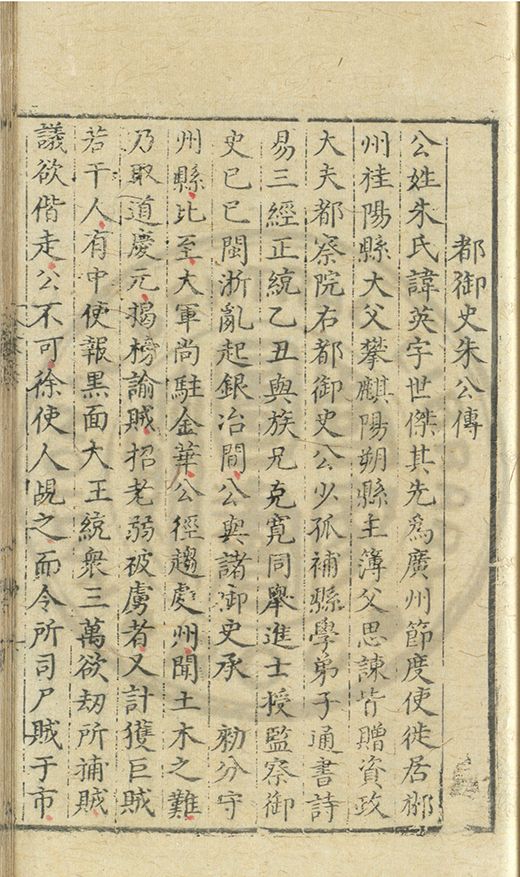 都御史朱公傳
公姓朱氏諱英字世傑其先爲廣州節度使徙居郴
州桂陽縣大父攀麒陽朔縣主簿父思諫皆贈資政
大夫都察院右都御史公少孤補縣學弟子通書詩
易三經正統乙丑與族兄克寛同舉進士授監察御
史巳巳閩浙亂起銀冶間公與諸御史承 勑分守
州縣比至大軍尚駐金華公徑趨處州聞土木之難
乃取道慶元揭榜諭賊招老弱被虜者又計獲巨賊
若干人有中使報黒面大王統衆三萬欲刼所捕賊
議欲偕走公不可徐使人覘之而令所司尸賊于市